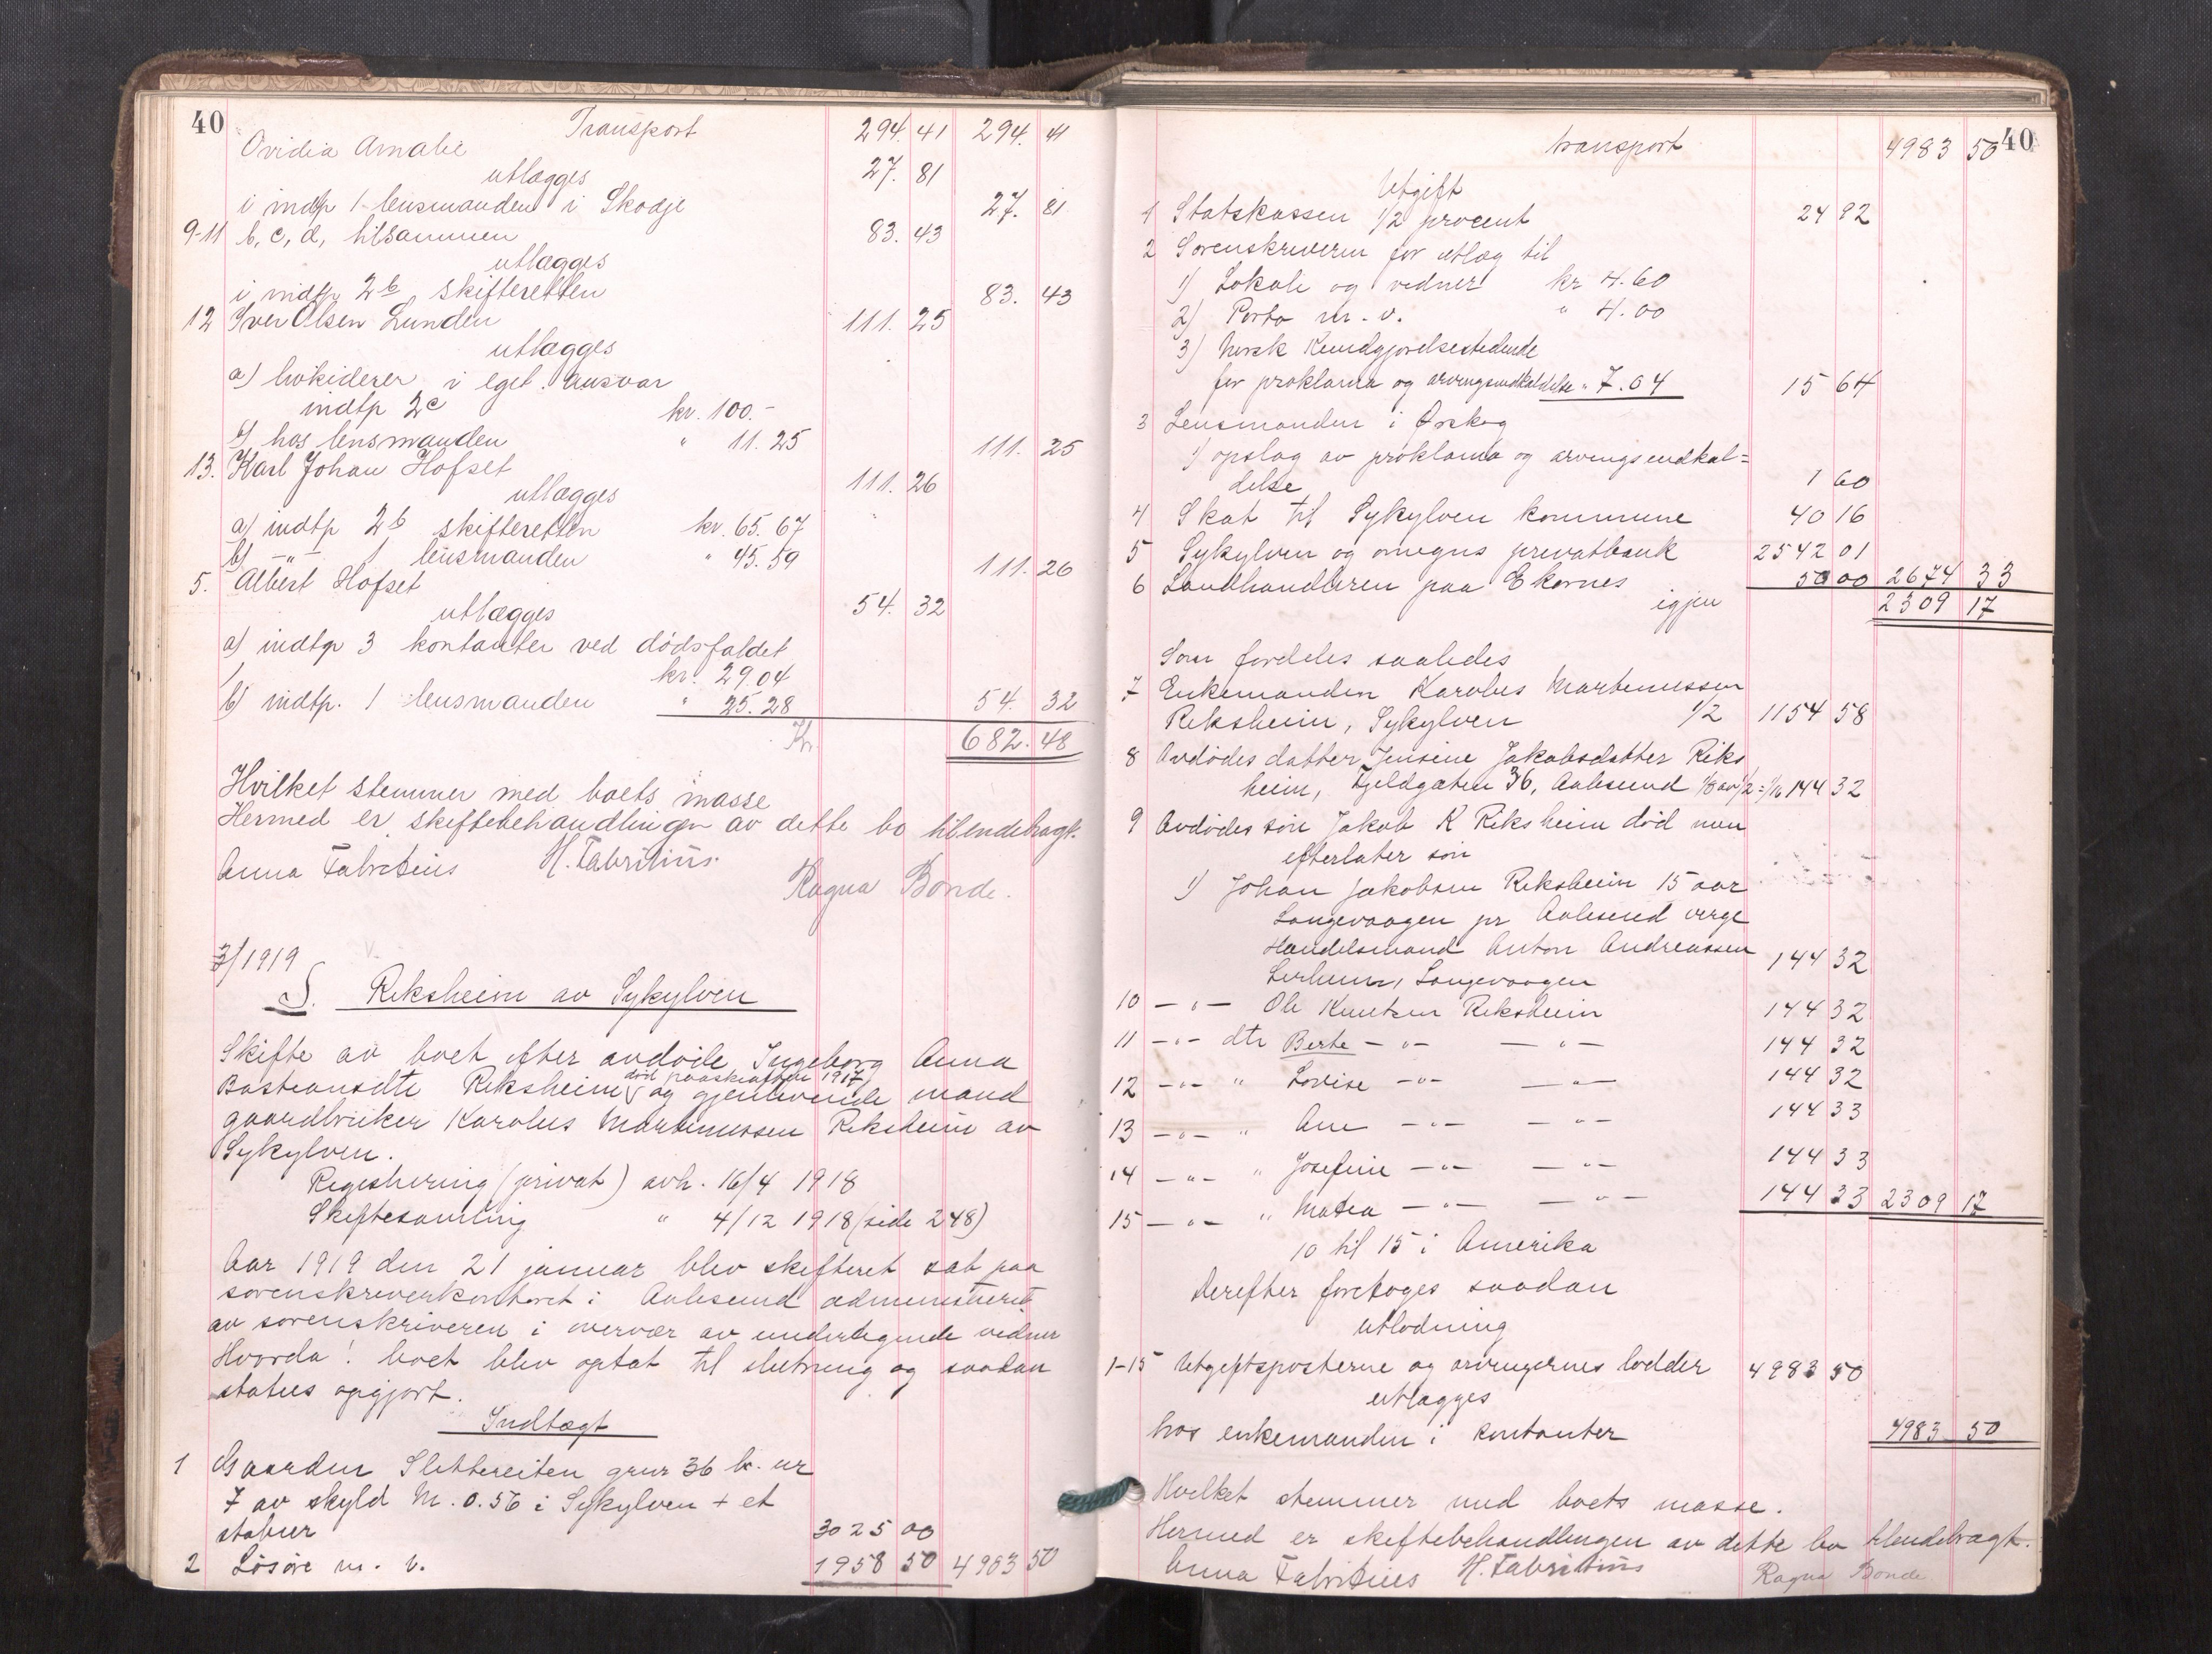 40
Transport 294. 41 294. 41
Ovidia Amalie
utlægges 27. 81
i indtp 1 lensmanden i Skodje 27. 81
9-11 b, c, d, tilsammen 83. 43
utlægges
i indtp 2b skifteretten 83. 43
12 Iver Olsen Lunden 111. 25
utlægges
a) livkiderer i eget ansvar
indtp 2c kr. 100.-
b) hos lensmanden " 11.25 111. 25
13. Karl Johan Hofset 111. 26
utlægges
a) indtp 2b skifteretten kr. 65.67
b) -"- 1 lensmanden " 45.59 111. 26
5. Albert Hofset 54. 32
utlægges
a) indtp 3 kontanter ved dødsfaldet
kr. 29.04
b) indtp. 1 lensmanden " 25.28 54. 32
Kr. 682. 48
Hvilket stemmer med boets masse
Hermed er skiftebehandlingen av dette bo tilendebragt.
Anna Fabritius H. Fabritius.
Ragna Bonde.
3/1919
S. Riksheim av Sykylven
Skifte av boet efter avdøde Ingeborg Anna
Bastiansdtr Riksheim død paaskeaften 1917 og gjenlevende mand
gaardbruker Karolus Martinussen Riksheim av
Sykylven.
Registrering (privat) avh. 16/4 1918
Skiftesamling " 4/12 1918 (side 248)
Aar 1919 den 21 januar blev skifteret sat paa
sorenskriverkontoret i Aalesund administreret
av sorenskriveren i overvær av undertegnede vidner
Hvorda! boet blev optat til slutning og saadan
status opgjort.
Indtægt
1 Gaarden Slettereiten gnr 36 br. nr
7 av skyld M. 0.56 i Sykylven + et
stabur 3025 00
2 Løsøre m. v. 1958 50 4983 50
40
transport 4983 50
Utgift
1 Statskassen 1/2 procent 24 92
2 Sorenskriveren for utlæg til
1) Lokale og vidner kr 4.60
2) Porto m. v. " 4.00
3) Norsk Kundgjørelsestidende
for proklama og arvingsindkaldelse " 7.04 15 64
3 Lensmanden i Ørskog
1) opslag av proklama og arvingsindkal=
delse 1 60
4 Skat til Sykylven kommune 40 16
5 Sykylven og omegns privatbank 2542 01
6 Landhandleren paa Ekornes 50 00 2674 33
igjen 2309 17
Som fordeles saaledes
7 Enkemanden Karolus Martinussen
Riksheim, Sykylven 1/2 1154 58
8 Avdødes datter Jensine Jakobsdatter Riks
heim, Fjeldgaten 36, Aalesund 1/8 av 1/2 = 1/16 144 32
9 Avdødes søn Jakob K Riksheim død men
efterlater søn
1) Johan Jakobsen Riksheim 15 aar
Langevaagen pr Aalesund verge
Handelsmand Anton Andreassen
Lerheim, Langevaagen 144 32
10 -"- Ole Knutsen Riksheim 144 32
11 -"- dtr Berte -"- -"- 144 32
12 -"- " Lovise -"- -"- 144 32
13 -"- " Ane -"- -"- 144 33
14 -"- " Josefine -"- -"- 144 33
15 -"- " Matea -"- -"- 144 33 2309 17
10 til 15 i Amerika
Derefter foretoges saadan
utlodning
1-15 Utgiftsposterne og arvingernes lodder 4983 50
utlægges
hos enkemanden i kontanter 4983 50
Hvilket stemmer med boets masse.
Hermed er skiftebehandlingen av dette bo tilendebragt.
Anna Fabritius H. Fabritius Ragna Bonde